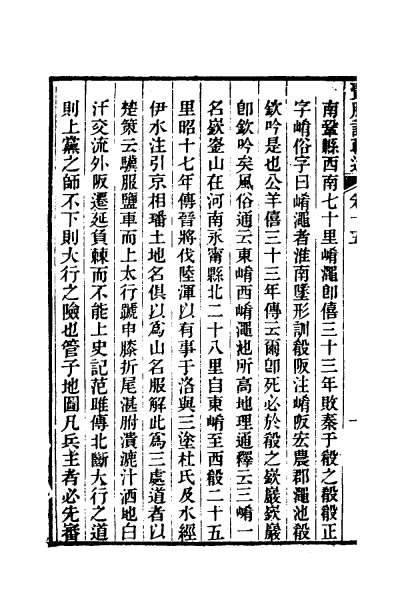 南鞏縣西南七十里崤澠卽僖三十三年敗秦于殽之殽殽正
字崤俗字曰崤澠者淮南墜形訓殽阪注崤阪宏農郡澠池殽
欽吟是也公羊僖三十三年傳云爾卽死必於殽之嶔巖嶔巖
卽欽吟矣風俗通云東崤西崤澠池所高地理通釋云三崤一
名嶔崟山在河南永甯縣北二十八里自東崤至西殽二十五
里昭十七年傳晉將伐陸渾以有事于洛與三塗杜氏及水經
伊水注引京相璠土地名俱以爲山名服解此爲三處道者以
楚策云驥服鹽車而上太行蹏申膝折尾湛胕潰漉汁洒地白
汗交流外阪遷延負棘而不能上史記范雎傳北斷大行之道
則上黨之師不下則大行之險也管子地圖凡兵主者必先審
卷十五
一